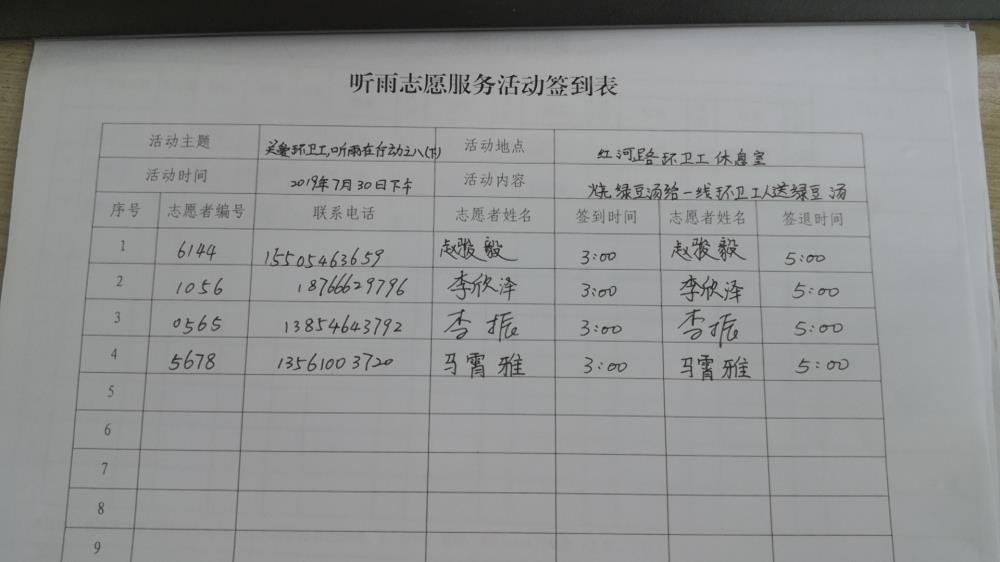 听雨志愿服务活动签到表
活动主题 关爱环卫工,听雨在行动之八(下) 活动地点 红河路环卫工休息室
活动时间 2019年7月30日下午 活动内容 烧绿豆汤给一线环卫工人送绿豆汤
序号 志愿者编号 联系电话 志愿者姓名 签到时间 志愿者姓名 签退时间
1 6144 15505463659 赵骏毅 3:00 赵骏毅 5:00
2 1056 18766629796 李欣泽 3:00 李欣泽 5:00
3 0565 13854643792 李振 3:00 李振 5:00
4 5678 13561003720 马霄雅 3:00 马霄雅 5:00
5
6
7
8
9